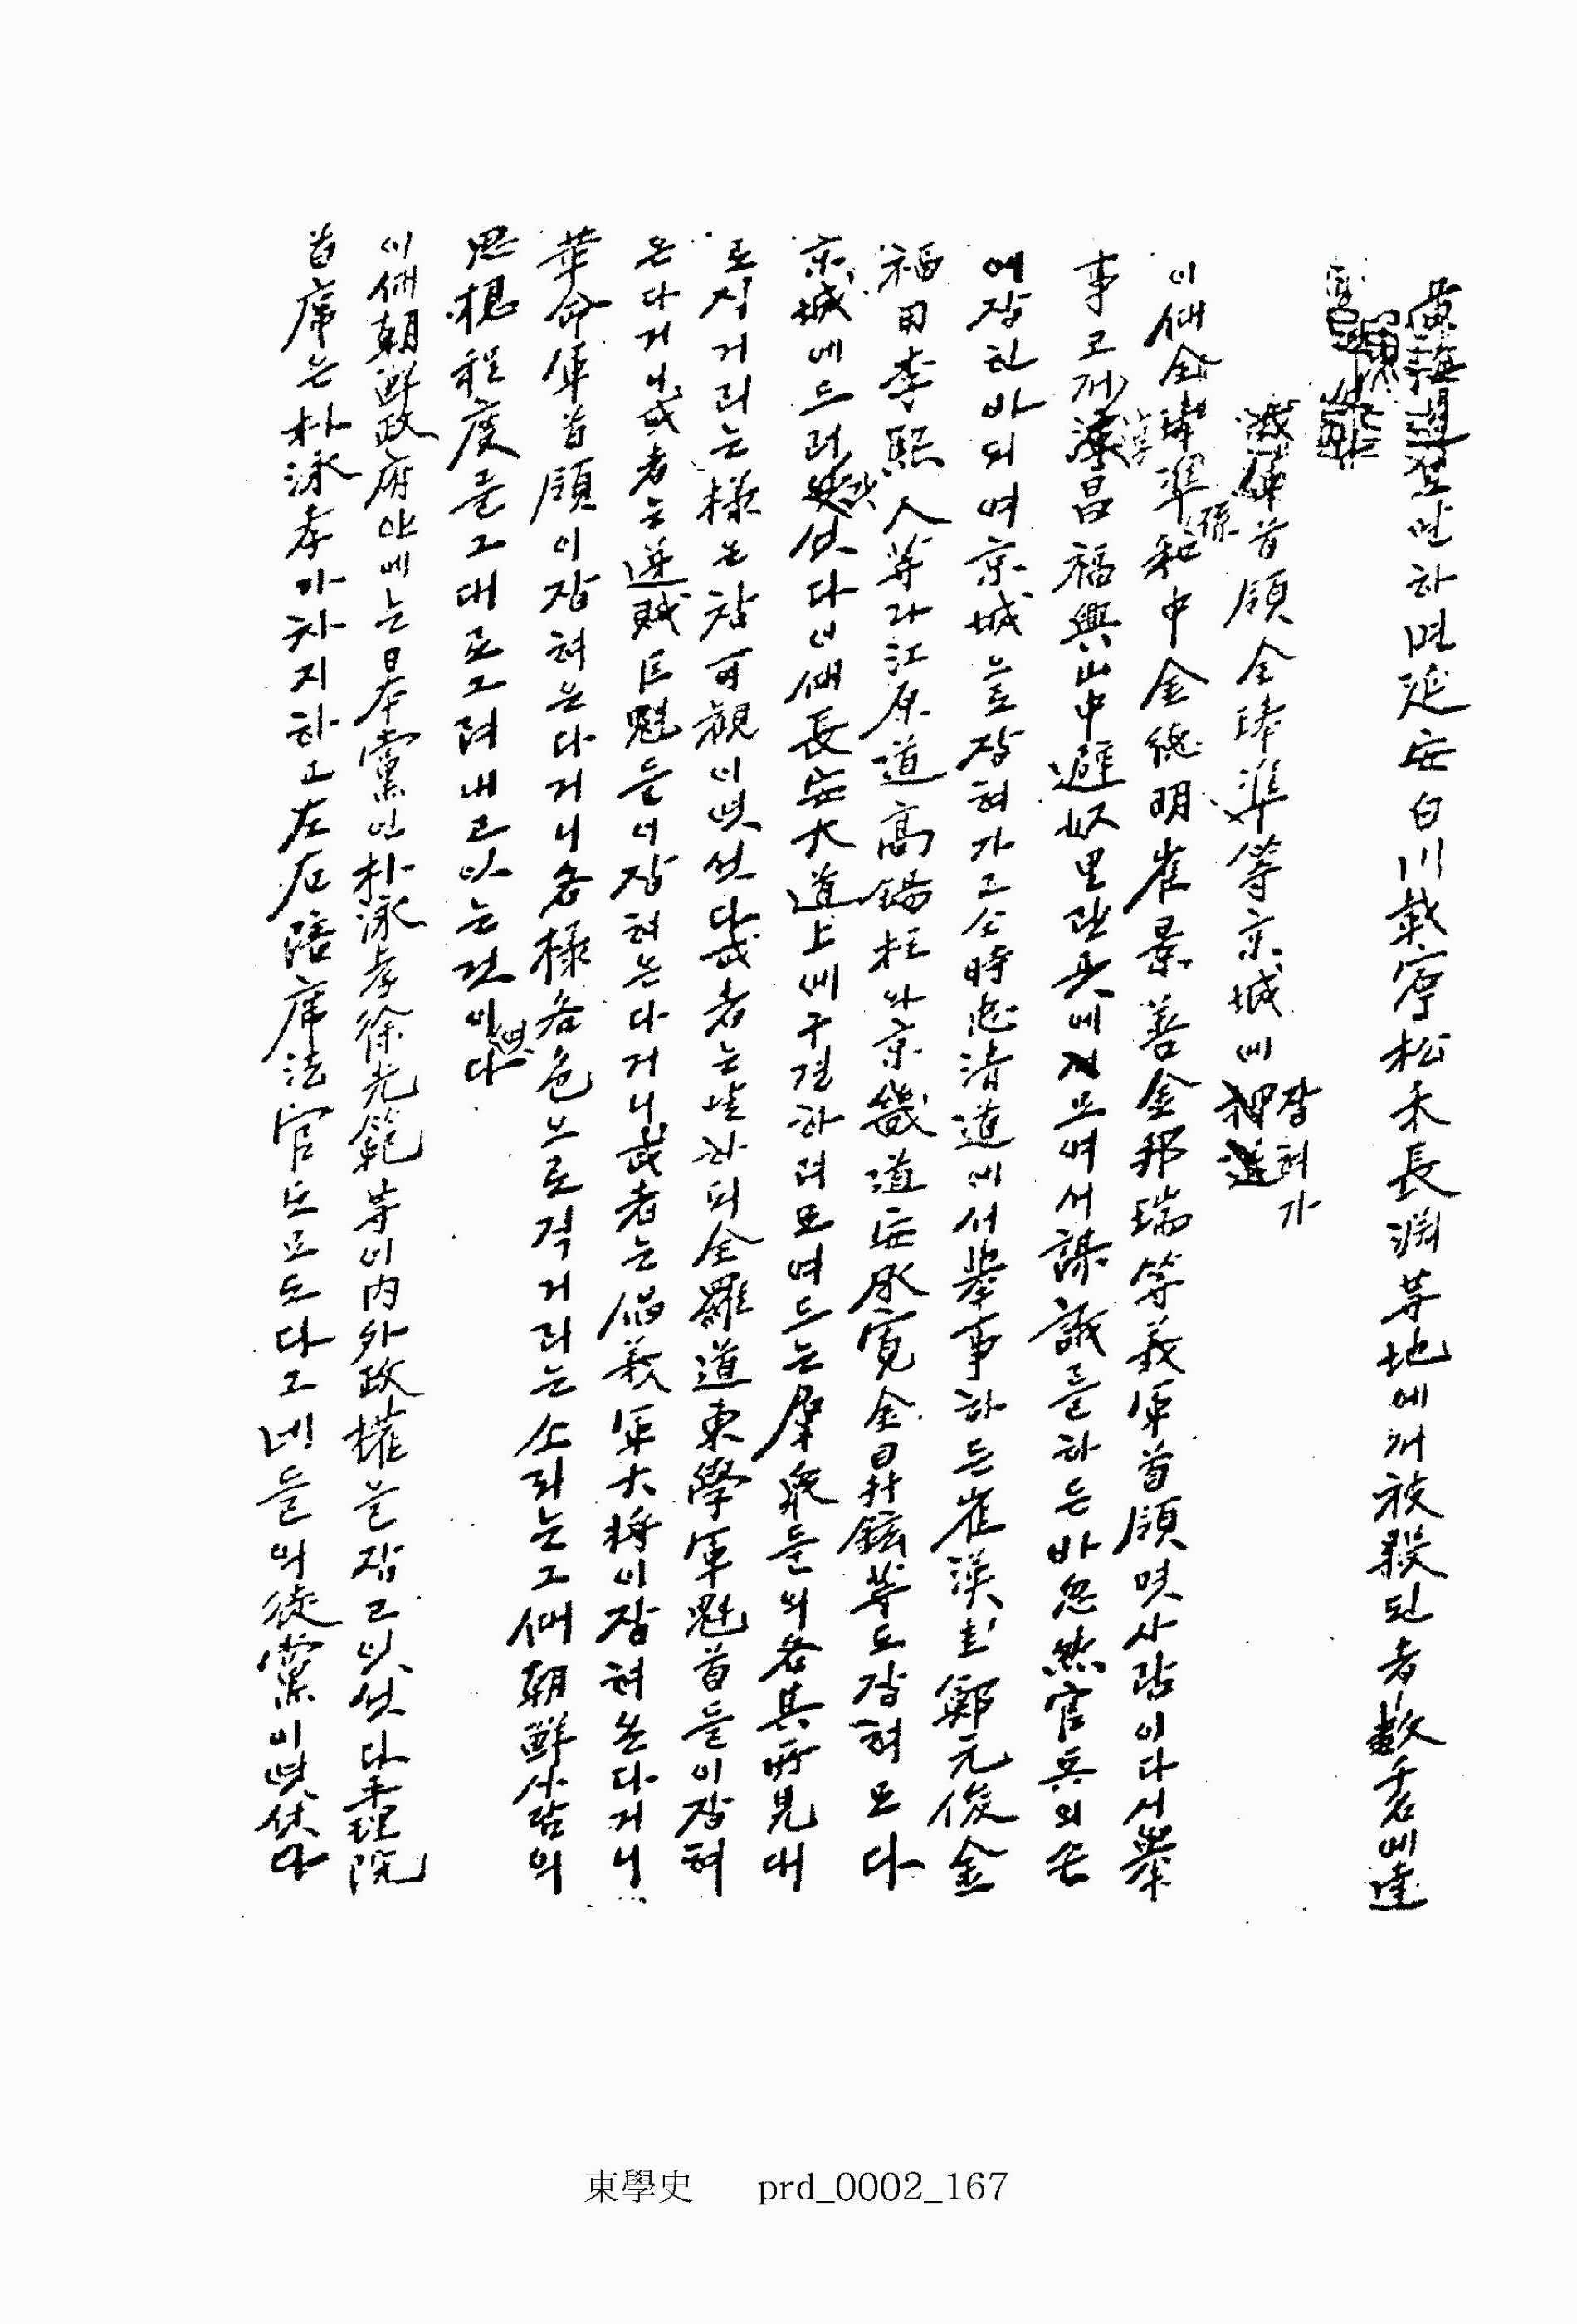 黃海道로말하면延安白川載寧松禾長淵等地에셔被殺된者數千名에達
義軍首領全琫準等京城에잡혀가
이때全琫準孫和中金德明崔景善金邦瑞等義軍首領몃사람이다시擧
事고개淳昌福興山中避奴里란곳에거모여서謀議를하든바忽然官兵의손
에잡힌바되여京城으로잡혀가고仝時忠淸道에서擧事하든崔漢圭鄭元俊金
福田李熙人等과江原道高錫柱와京畿道安承寬金昇鉉等도잡혀모다
京城에드러갓섯다이때長安大道上에구경하려모여드는羣衆들의各其所見대
로지거리는樣은참可觀이엿섯다或者는말하되全羅道東學軍魁首들이잡혀
온다거니或者는逆賊巨魁들이잡혀온다거니或者는倡義軍大將이잡혀온다거니
革命軍首領이잡혀온다거니各樣各色으로지거리는소리는그때朝鮮사람의
思想程度를그대로그려내고잇는것이엿다
이때朝鮮政府안에는日本黨인朴泳孝徐光範等이內外政權을잡고잇섯다審理院
首席은朴泳孝가차지하고左右陪席法官도모도다그네들의徒黨이엿섯다
東學史 prd_0002_167